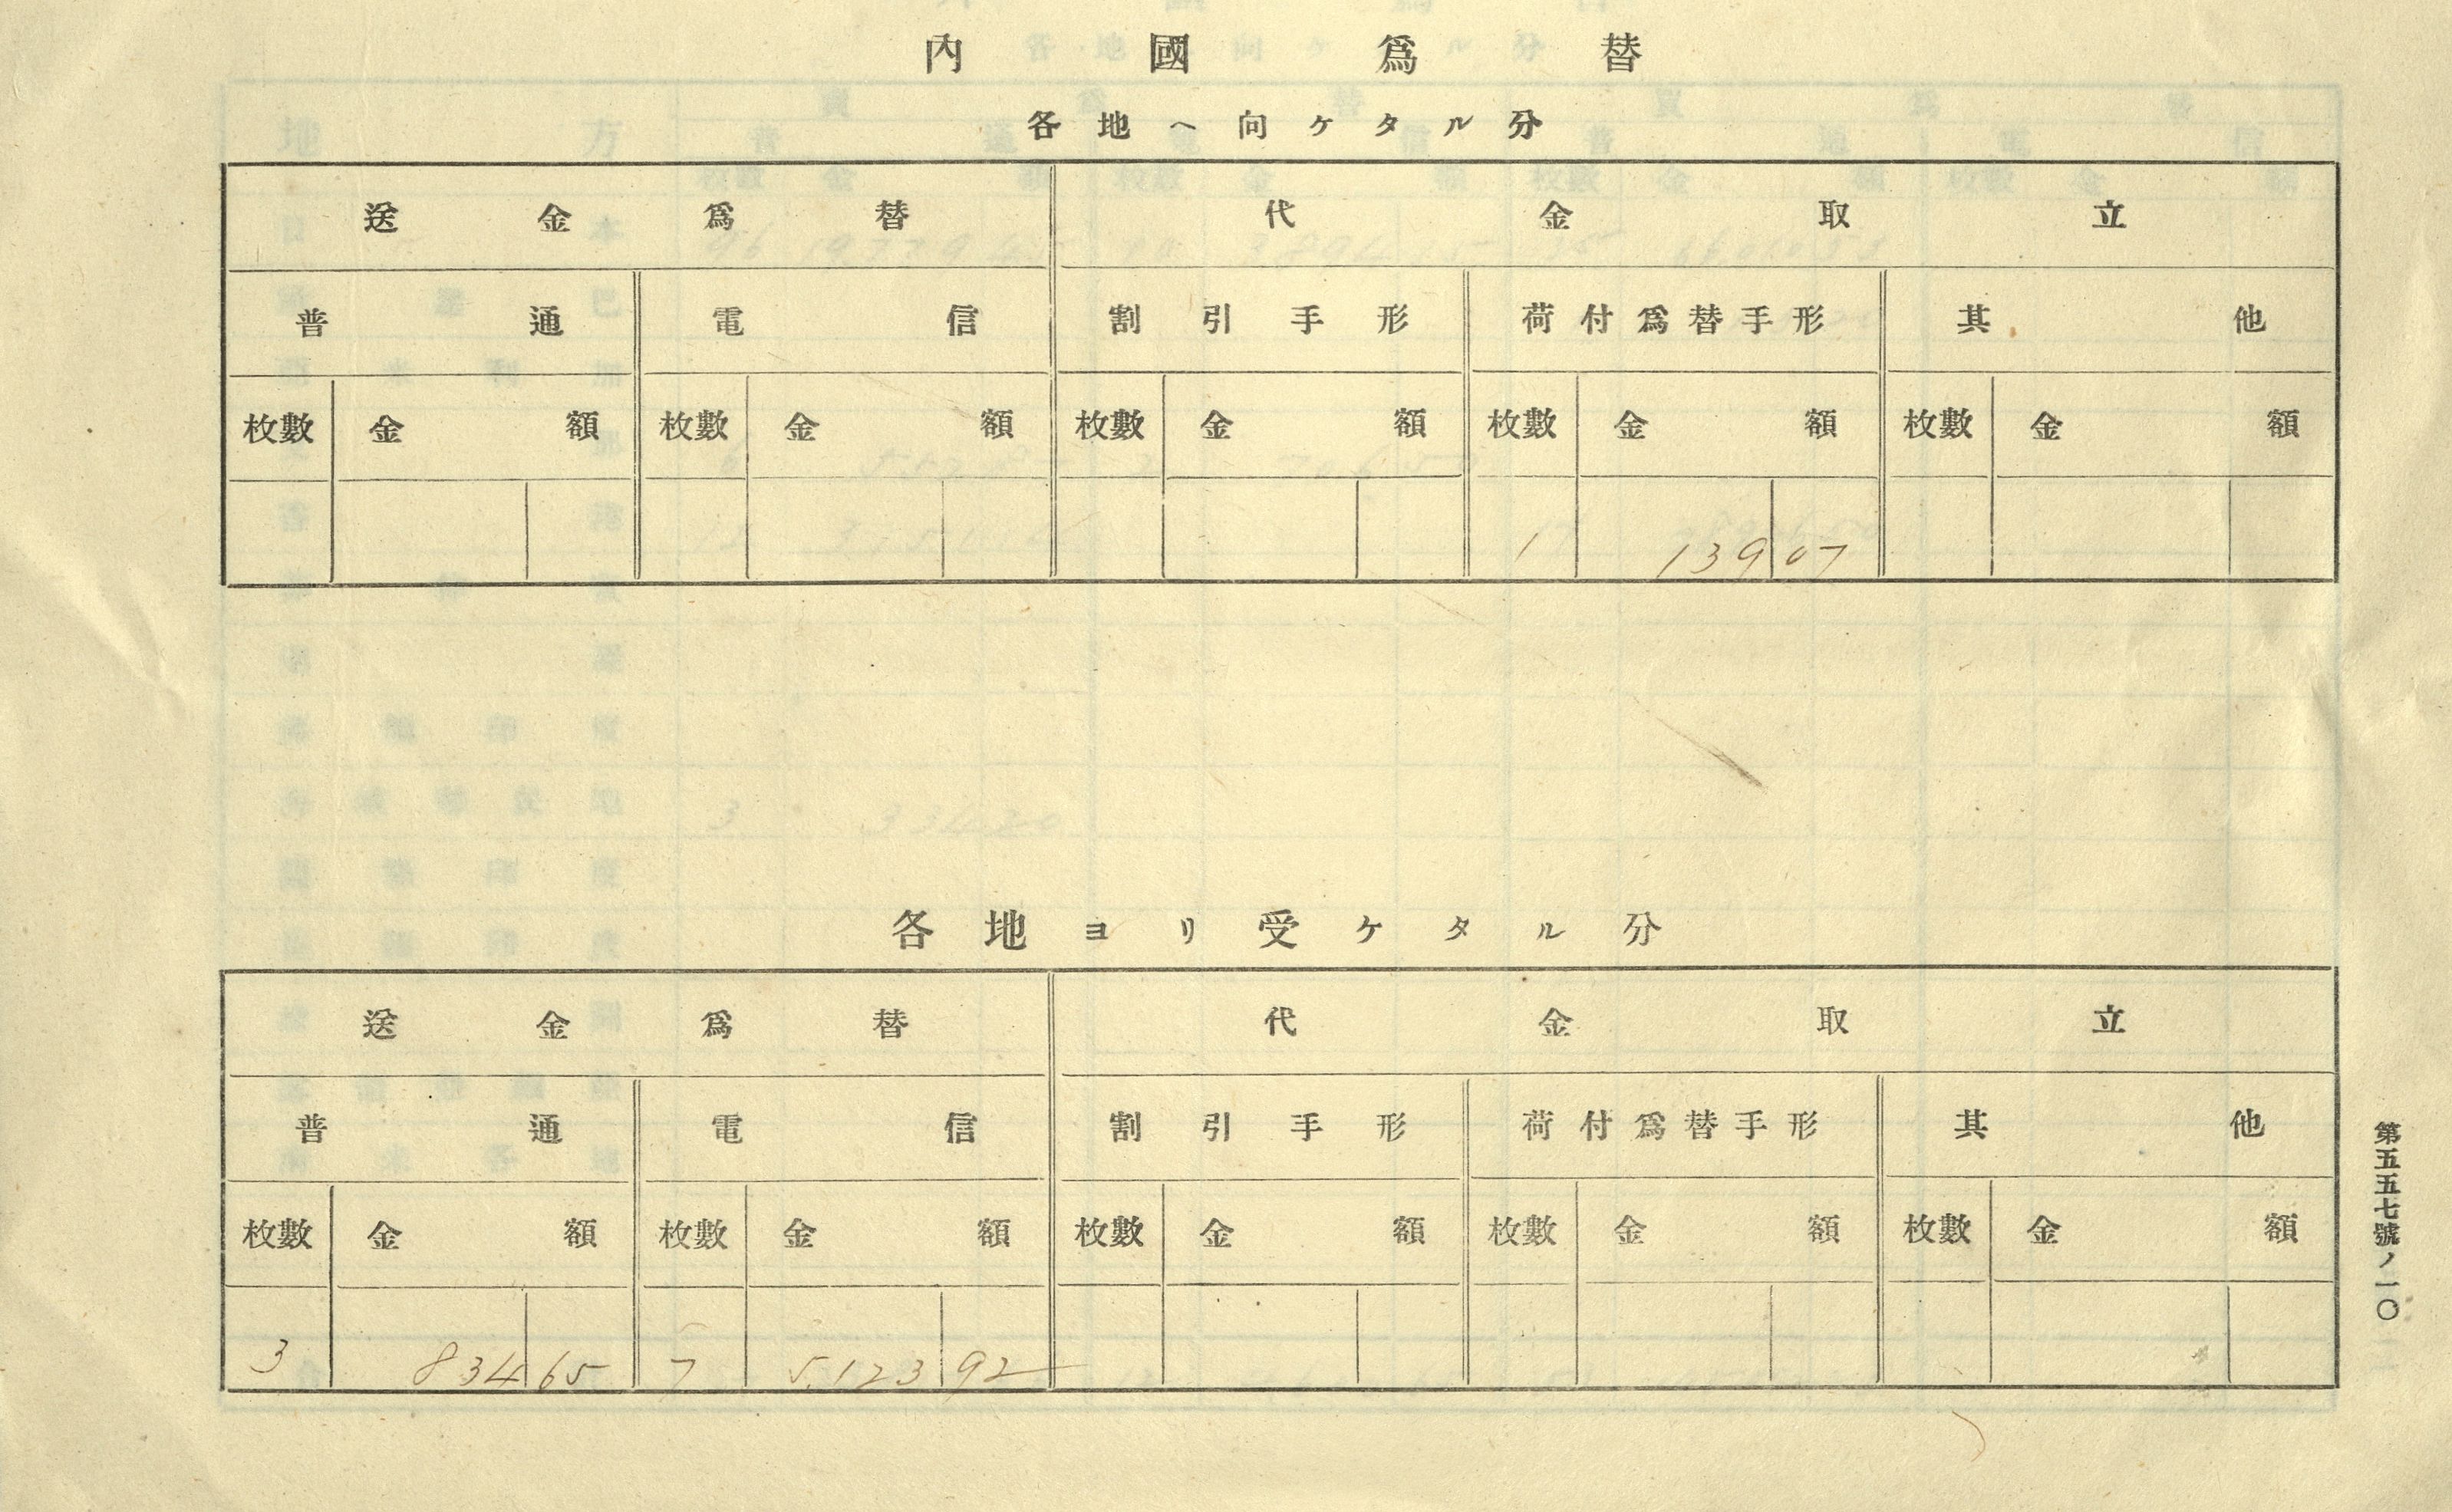 內國爲替
各地ヘ向ケタル分
送金爲替 代金取立
普通 電信 割引手形 荷付爲替手形 其他
枚數 金額 枚數 金額 枚數 金額 枚數 金額 枚數 金額
1 139 07
各地ヨリ受ケタル分
送金爲替 代金取立
普通 電信 割引手形 荷付爲替手形 其他
枚數 金額 枚數 金額 枚數 金額 枚數 金額 枚數 金額
3 834 65 7 5,123 92
第五五七號ノ一〇